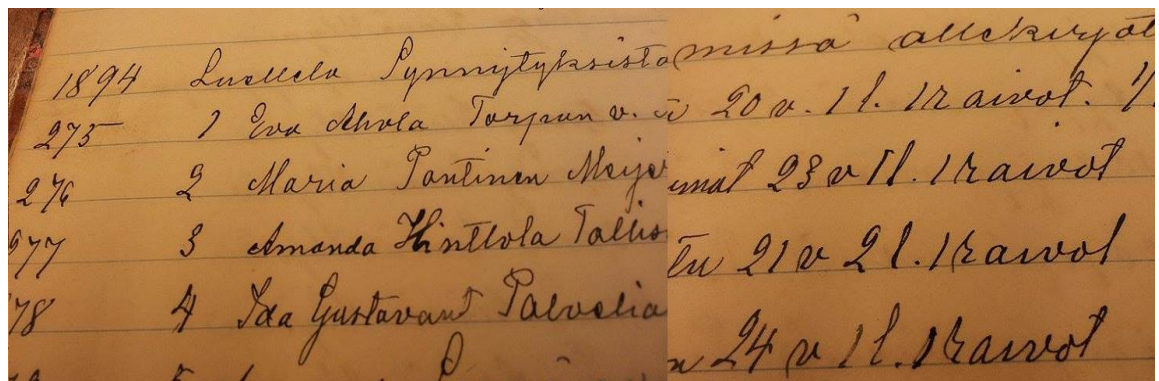 1894 Luettelo Synnytyksistä missä allekirjot
275 1 Eva Ahola Torpan v. 20 v. 1 l. 1 R aivot.
276 2 Maria Pontinen Meijer 23 v 1 l. 1 R aivot
277 3 Amanda Hinttola Tallis 21 v 2 l. 1 R aivot
78 4 Ida Gustavant Palvelia 24 v 1 l. 1 R aivot